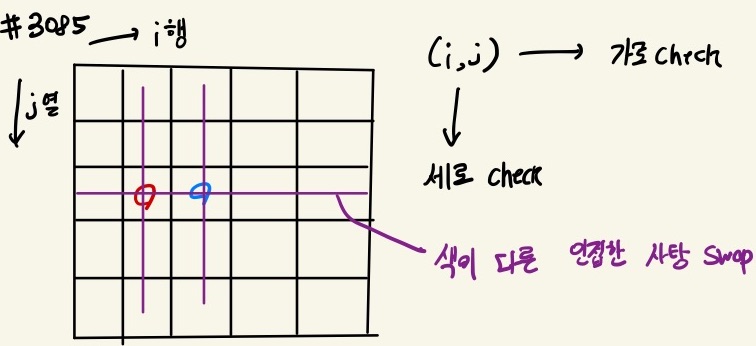 #3085
i행
j열
(i,j) 가로 check
세로 check
색이 다른 인접한 사탕 swap